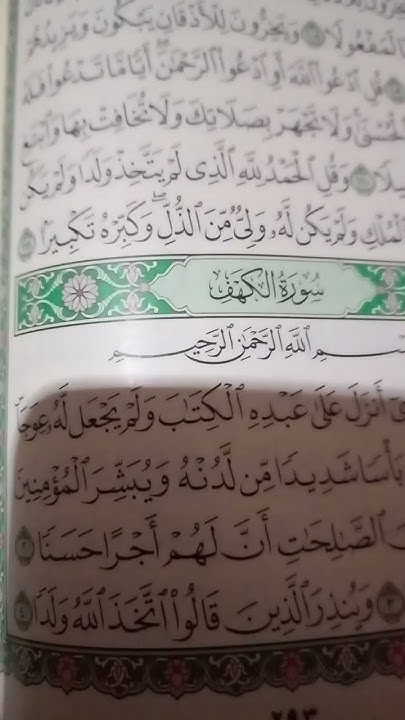 لَمَفْعُولًا ١٠٨ وَيَخِرُّونَ لِلْأَذْقَانِ يَبْكُونَ وَيَزِيدُهُمْ
قُلِ ادْعُوا اللَّهَ أَوِ ادْعُوا الرَّحْمَٰنَ أَيًّا مَّا تَدْعُوا فَلَهُ
الْحُسْنَىٰ وَلَا تَجْهَرْ بِصَلَاتِكَ وَلَا تُخَافِتْ بِهَا وَابْتَغِ
وَقُلِ الْحَمْدُ لِلَّهِ الَّذِي لَمْ يَتَّخِذْ وَلَدًا وَلَمْ يَكُن
الْمُلْكِ وَلَمْ يَكُن لَّهُ وَلِيٌّ مِّنَ الذُّلِّ وَكَبِّرْهُ تَكْبِيرًا
سُورَةُ الْكَهْفِ
بِسْمِ اللَّهِ الرَّحْمَٰنِ الرَّحِيمِ
أَنزَلَ عَلَىٰ عَبْدِهِ الْكِتَابَ وَلَمْ يَجْعَل لَّهُ عِوَجًا
بَأْسًا شَدِيدًا مِّن لَّدُنْهُ وَيُبَشِّرَ الْمُؤْمِنِينَ
الصَّالِحَاتِ أَنَّ لَهُمْ أَجْرًا حَسَنًا ٢
٣ وَيُنذِرَ الَّذِينَ قَالُوا اتَّخَذَ اللَّهُ وَلَدًا ٤
٢٩٣